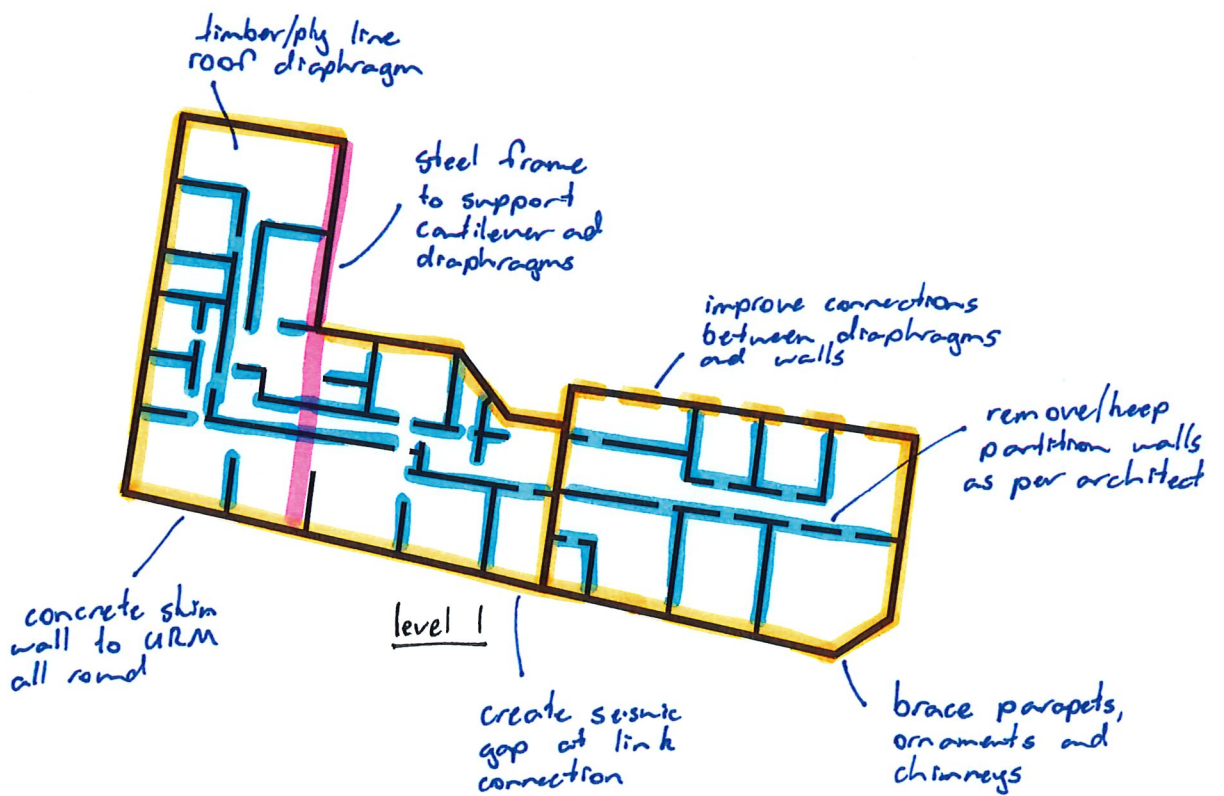 timber/ply line
roof diaphragm
steel frame
to support
cantilever and
diaphragms
improve connections
between diaphragms
and walls
remove/keep
partition walls
as per architect
concrete skin
wall to URM
all round
level 1
create seismic
gap at link
connection
brace parapets,
ornaments and
chimneys